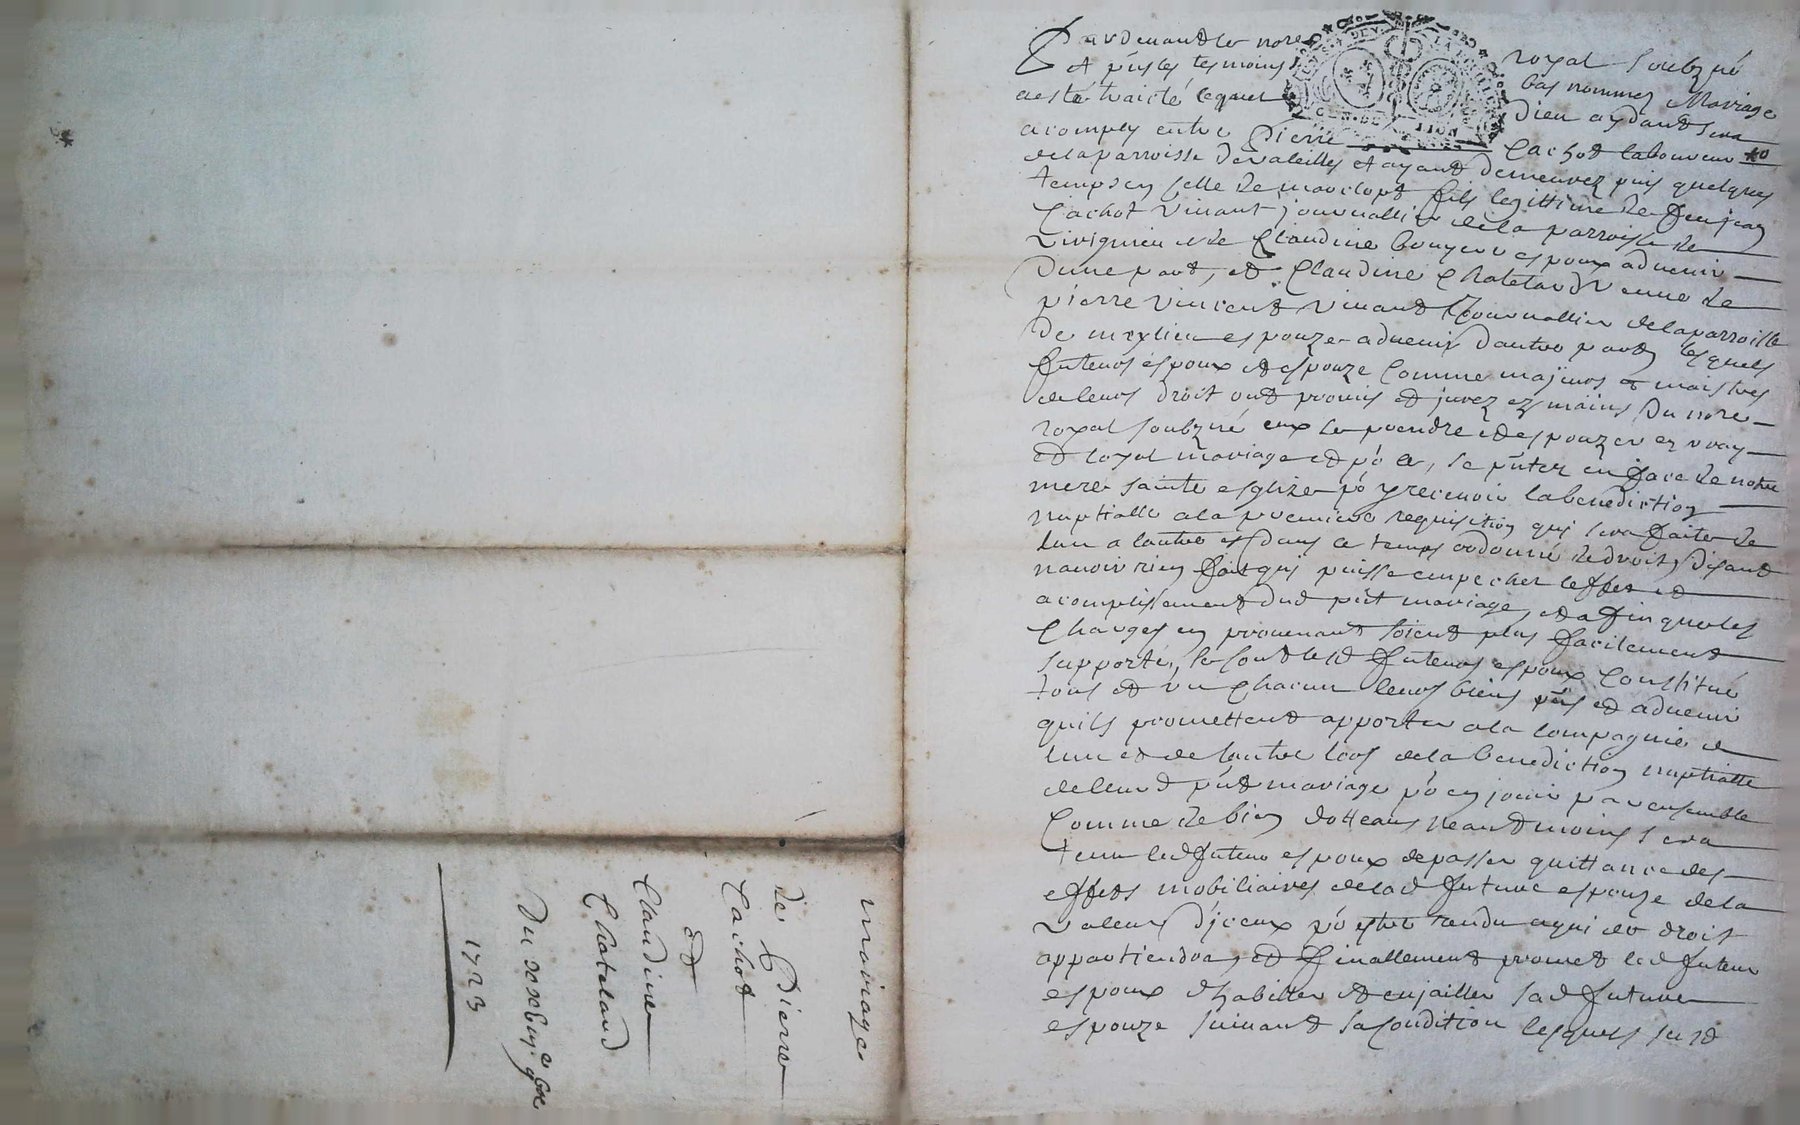 Pardevant le nore royal soubzné
et puis les tesmoins bas nommez Mariage
a esté traicté lequel Dieu aydant sera
acomply entre Pierre Cachot laboureur
de la parroisse de valeilles et ayant demeurez puis quelques
temps en celle de marclopt fils legittime de feu jean
Cachot vivant journallier de la parroisse de
et de Claudine bouyer espoux advenir
dune part, et Claudine Chateland veuve de
pierre vincent vivant journallier de la parroisse
de meylieu espouze advenir dautre part, lesquels
futurs espoux et espouze comme majeurs et maistres
de leurs droit ont promis et jurez ez mains du nore
royal soubzné eux le prendre et espouzer en vray
et loyal mariage et po ce, se pnter en face de notre
mere sainte esglize po y recevoir la benediction
nuptialle a la premiere requisition quy sera faite de
lun a lautre et dans ce temps ordonné de droit, disant
navoir rien fait qui puisse empecher leffet et
acomplissement dud pnt mariage, et afin que les
Charges en provenant soient plus facilement
supporté, se sont lesd futeurs espoux constitué
tous et un chacun leurs biens pns et advenir
quils promettent apporter a la compagnie de
lun et de lautre lors de la benediction nuptialle
de leurd pnt mariage po en jouir par ensemble
Comme de bien dotteaux neantmoins sera
tenu led futeur espoux de passer quittance des
effets mobiliaires de lad future espouze de la
valleur diceux po estre rendu a qui de droit
appartiendra, et finallement promet led futeur
espoux dhabiller et enjailler sad future
espouze suivant sa condition lesquels susd
mariage
de Pierre
Cachot
et
Claudine
Chateland
Du
1723